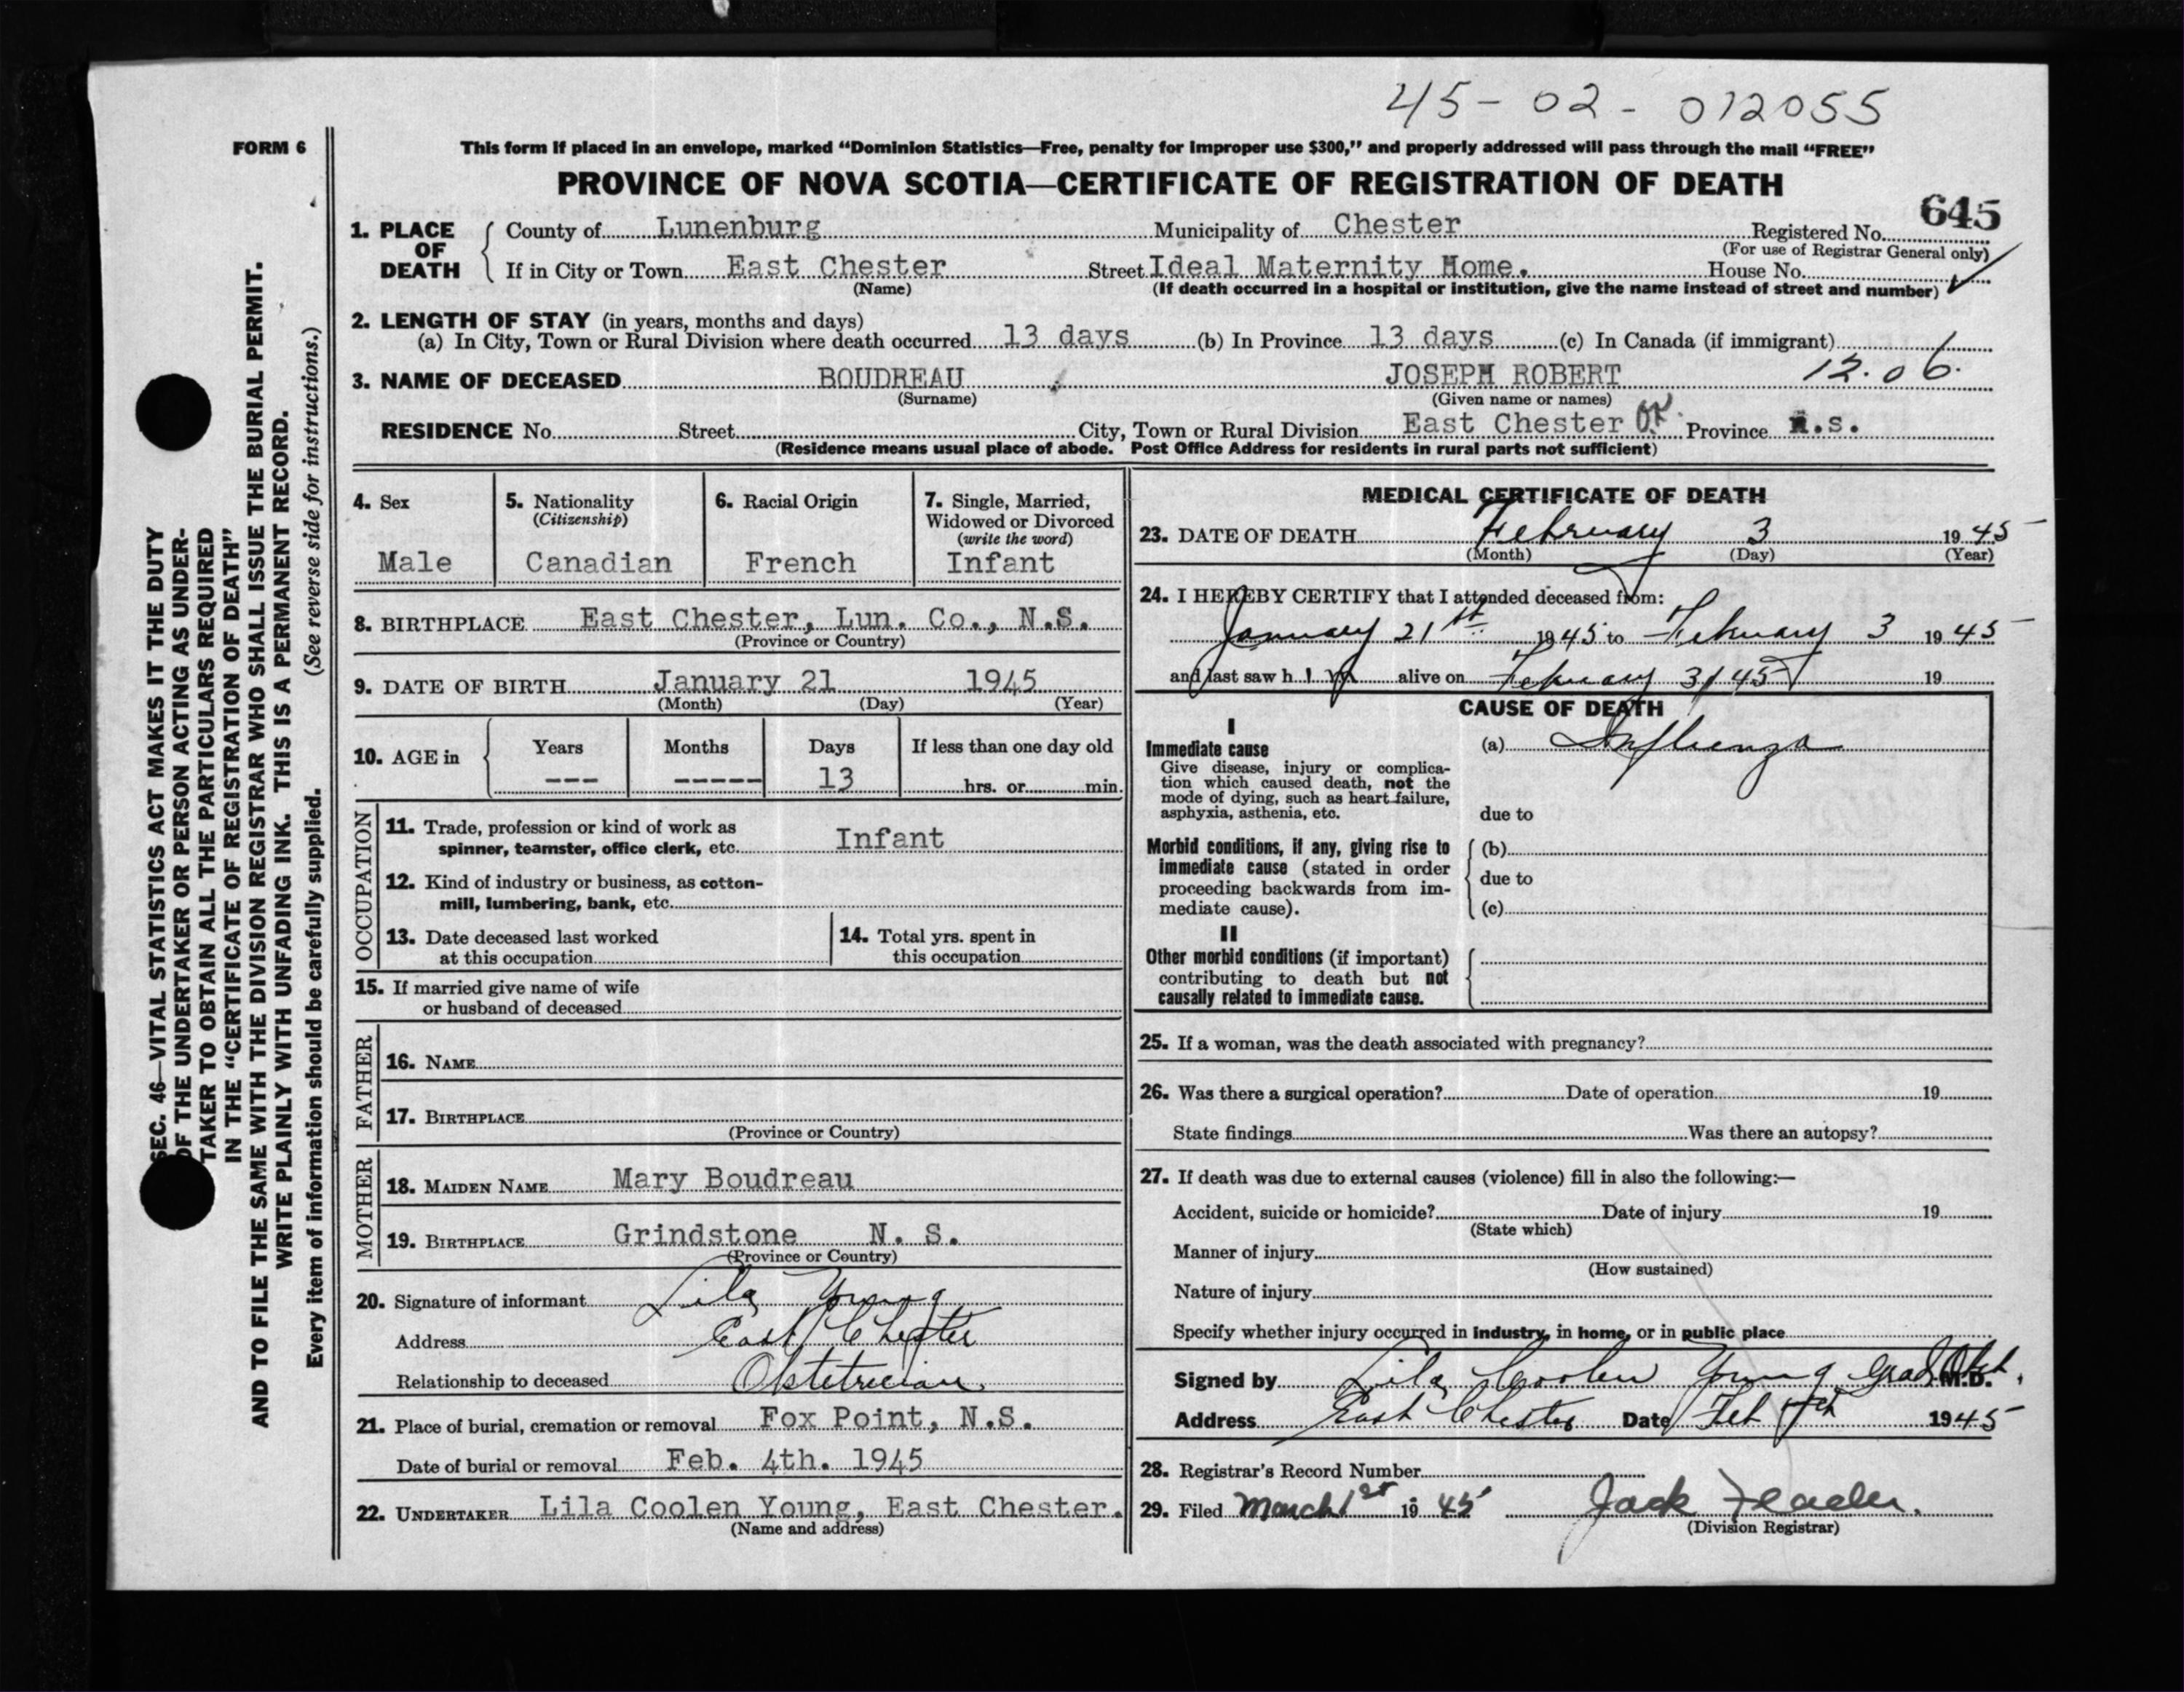 45-02-012055
FORM 6
This form if placed in an envelope, marked “Dominion Statistics—Free, penalty for improper use $300,” and properly addressed will pass through the mail “FREE”
PROVINCE OF NOVA SCOTIA—CERTIFICATE OF REGISTRATION OF DEATH
645
1. PLACE OF DEATH
County of Lunenburg Municipality of Chester Registered No.
(For use of Registrar General only)
If in City or Town East Chester Street Ideal Maternity Home. House No.
(Name) (If death occurred in a hospital or institution, give the name instead of street and number)
2. LENGTH OF STAY (in years, months and days)
(a) In City, Town or Rural Division where death occurred 13 days (b) In Province 13 days (c) In Canada (if immigrant)
3. NAME OF DECEASED BOUDREAU JOSEPH ROBERT 12.06.
(Surname) (Given name or names)
RESIDENCE No. Street City, Town or Rural Division East Chester Province N.S.
(Residence means usual place of abode. Post Office Address for residents in rural parts not sufficient)
4. Sex
Male
5. Nationality
(Citizenship)
Canadian
6. Racial Origin
French
7. Single, Married,
Widowed or Divorced
(write the word)
Infant
8. BIRTHPLACE East Chester, Lun. Co., N.S.
(Province or Country)
9. DATE OF BIRTH January 21 1945
(Month) (Day) (Year)
10. AGE in Years Months Days If less than one day old
--- ----- 13 hrs. or min.
OCCUPATION
11. Trade, profession or kind of work as
spinner, teamster, office clerk, etc. Infant
12. Kind of industry or business, as cotton-
mill, lumbering, bank, etc.
13. Date deceased last worked
at this occupation
14. Total yrs. spent in
this occupation
15. If married give name of wife
or husband of deceased
FATHER
16. NAME
17. BIRTHPLACE
(Province or Country)
MOTHER
18. MAIDEN NAME Mary Boudreau
19. BIRTHPLACE Grindstone N. S.
(Province or Country)
20. Signature of informant Lila Young
Address East Chester
Relationship to deceased Obstetrician
21. Place of burial, cremation or removal Fox Point, N.S.
Date of burial or removal Feb. 4th. 1945
22. UNDERTAKER Lila Coolen Young, East Chester.
(Name and address)
MEDICAL CERTIFICATE OF DEATH
23. DATE OF DEATH February 3 1945
(Month) (Day) (Year)
24. I HEREBY CERTIFY that I attended deceased from:
January 21st 1945 to February 3 1945
and last saw h im alive on February 3/45 19
CAUSE OF DEATH
I
Immediate cause
Give disease, injury or complica-
tion which caused death, not the
mode of dying, such as heart failure,
asphyxia, asthenia, etc.
(a) Influenza
due to
Morbid conditions, if any, giving rise to
immediate cause (stated in order
proceeding backwards from im-
mediate cause).
(b)
due to
(c)
II
Other morbid conditions (if important)
contributing to death but not
causally related to immediate cause.
25. If a woman, was the death associated with pregnancy?
26. Was there a surgical operation? Date of operation 19
State findings Was there an autopsy?
27. If death was due to external causes (violence) fill in also the following:—
Accident, suicide or homicide? Date of injury 19
(State which)
Manner of injury
(How sustained)
Nature of injury
Specify whether injury occurred in industry, in home, or in public place
Signed by Lila Coolen Young Grad Obst. M.D.
Address East Chester Date Feb 1945
28. Registrar's Record Number
29. Filed March 1st 1945 Jack
(Division Registrar)
SEC. 46—VITAL STATISTICS ACT MAKES IT THE DUTY
OF THE UNDERTAKER OR PERSON ACTING AS UNDER-
TAKER TO OBTAIN ALL THE PARTICULARS REQUIRED
IN THE “CERTIFICATE OF REGISTRATION OF DEATH”
AND TO FILE THE SAME WITH THE DIVISION REGISTRAR WHO SHALL ISSUE THE BURIAL PERMIT.
WRITE PLAINLY WITH UNFADING INK. THIS IS A PERMANENT RECORD.
Every item of information should be carefully supplied. (See reverse side for instructions.)